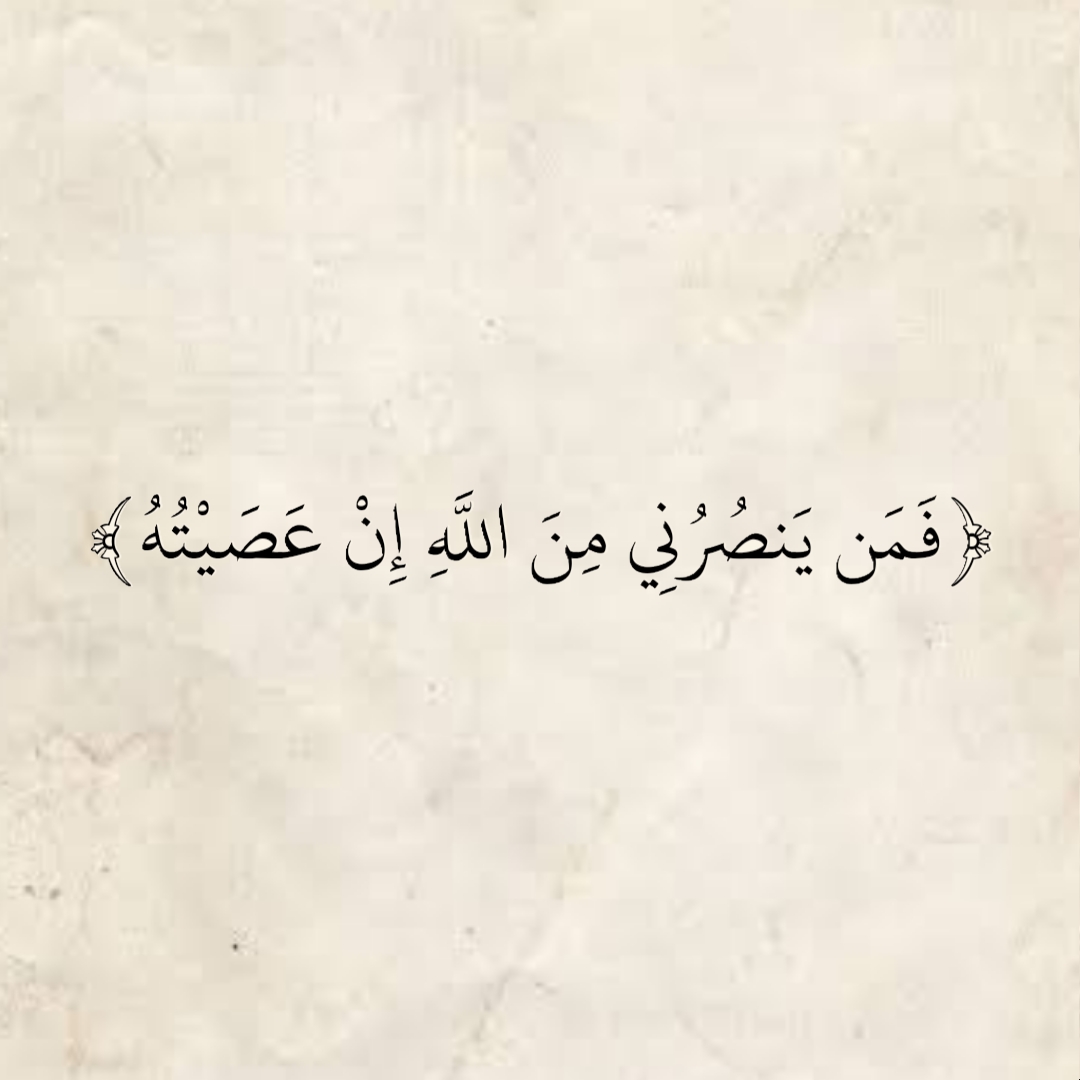 ﴿ فَمَن يَنصُرُنِي مِنَ اللَّهِ إِنْ عَصَيْتُهُ ﴾